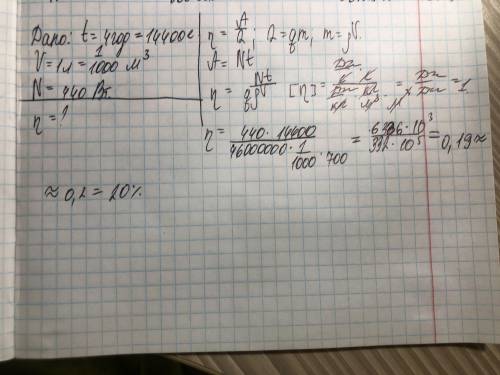 Дано: t = 4год = 14400с
V = 1л = 1/1000 м³
N = 440 Вт.
η = ?
η = A/Q; Q = qm, m = ρV.
A = Nt
η = Nt/qρV [η] =
η = 440 · 14400 / 46000000 · 1/1000 · 700 = 6336 · 10³ / 332 · 10⁵ = 0,19 ≈
≈ 0,2 = 20%